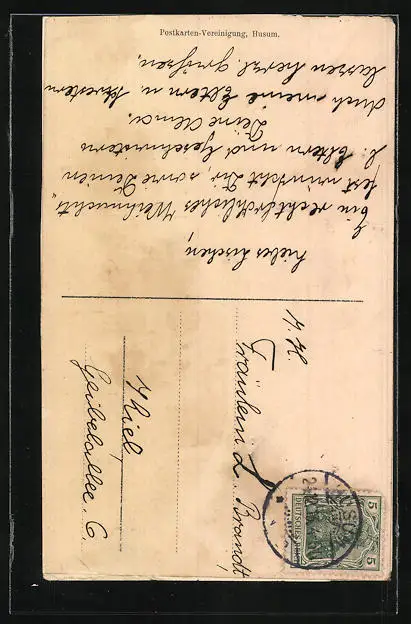 Postkarten-Vereinigung, Husum.
Liebes Lieschen,
Ein recht fröhliches Weihnachts-
fest wünscht Dir, sowie Deinen
l. Eltern und Geschwistern
Deine Alma.
Auch meine Eltern u. Schwestern
lassen herzl. grüßen.
Fräulein L. Brandt,
Kiel,
Geibelallee 6.
HUSUM
5 5
DEUTSCHES REICH